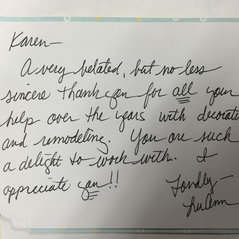 Karen—
A very belated, but no less
sincere thank you for all your
help over the years with decorating
and remodeling. You are such
a delight to work with. I
appreciate you!!
Fondly—
LuAnn